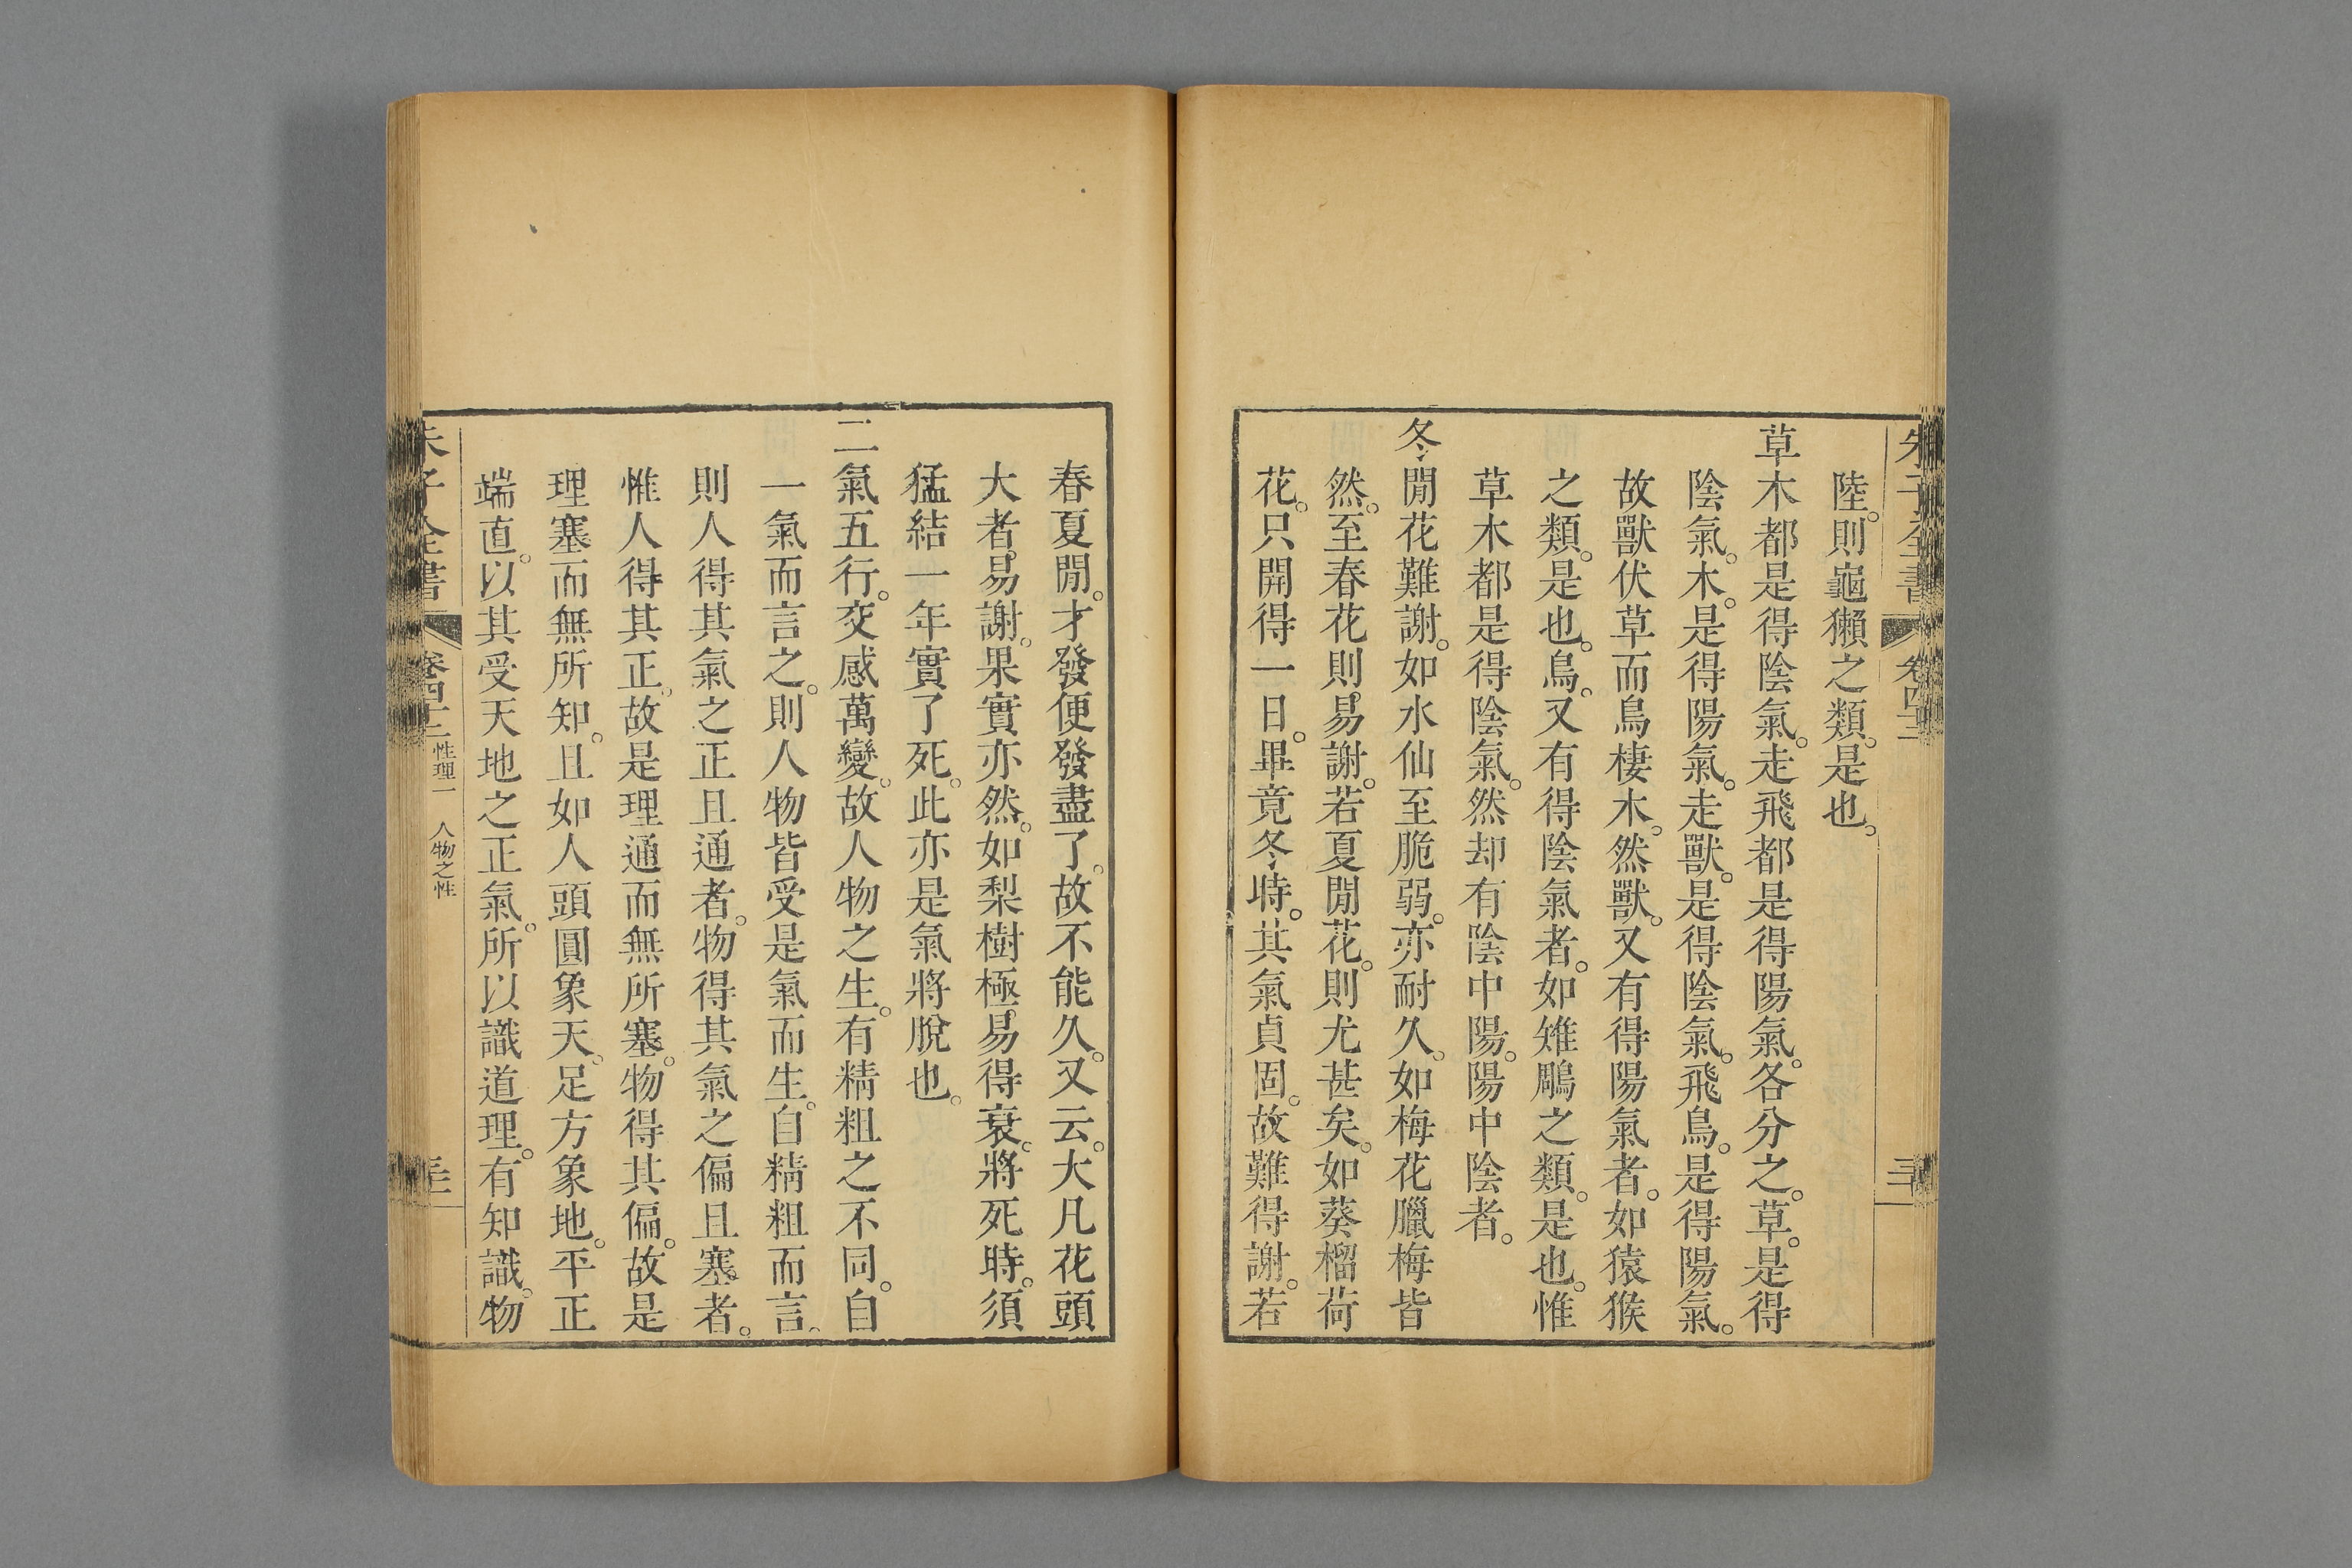 朱子全書 卷四十二
陸。則龜獺之類。是也。
草木都是得陰氣。走飛都是得陽氣。各分之。草。是得
陰氣。木。是得陽氣。走獸。是得陰氣。飛鳥。是得陽氣。
故獸伏草而鳥棲木。然獸。又有得陽氣者。如猿猴
之類。是也。鳥。又有得陰氣者。如雉鵰之類。是也。惟
草木都是得陰氣。然却有陰中陽。陽中陰者。
冬閒花難謝。如水仙至脆弱。亦耐久。如梅花臘梅皆
然。至春花則易謝。若夏閒花。則尤甚矣。如葵榴荷
花。只開得一日。畢竟冬時。其氣貞固。故難得謝。若
春夏閒。才發便發盡了。故不能久。又云。大凡花頭
大者。易謝。果實亦然。如梨樹極易得衰。將死時。須
猛結一年實了死。此亦是氣將脫也。
二氣五行。交感萬變。故人物之生。有精粗之不同。自
一氣而言之。則人物皆受是氣而生。自精粗而言。
則人得其氣之正且通者。物得其氣之偏且塞者。
惟人得其正。故是理通而無所塞。物得其偏。故是
理塞而無所知。且如人頭圓象天。足方象地。平正
端直。以其受天地之正氣。所以識道理。有知識。物
朱子全書 卷四十二 性理一 人物之性